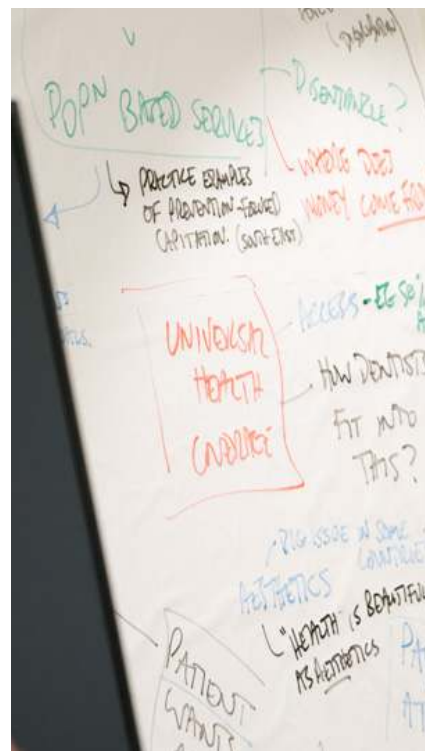 POPN BASED SERVICES
DISENTANGLE?
PRACTICE EXAMPLES
OF PREVENTION-FOCUSED
CAPITATION. (SOUTH EAST)
WHERE DOES
MONEY COME FROM
UNIVERSAL
HEALTH
COVERAGE
ACCESS - EG
HOW DENTISTS
FIT INTO
THIS?
BIG ISSUE IN SOME
COUNTRIES
AESTHETICS
"HEALTH" IS BEAUTIFUL
AESTHETICS
PATIENT
WANTS